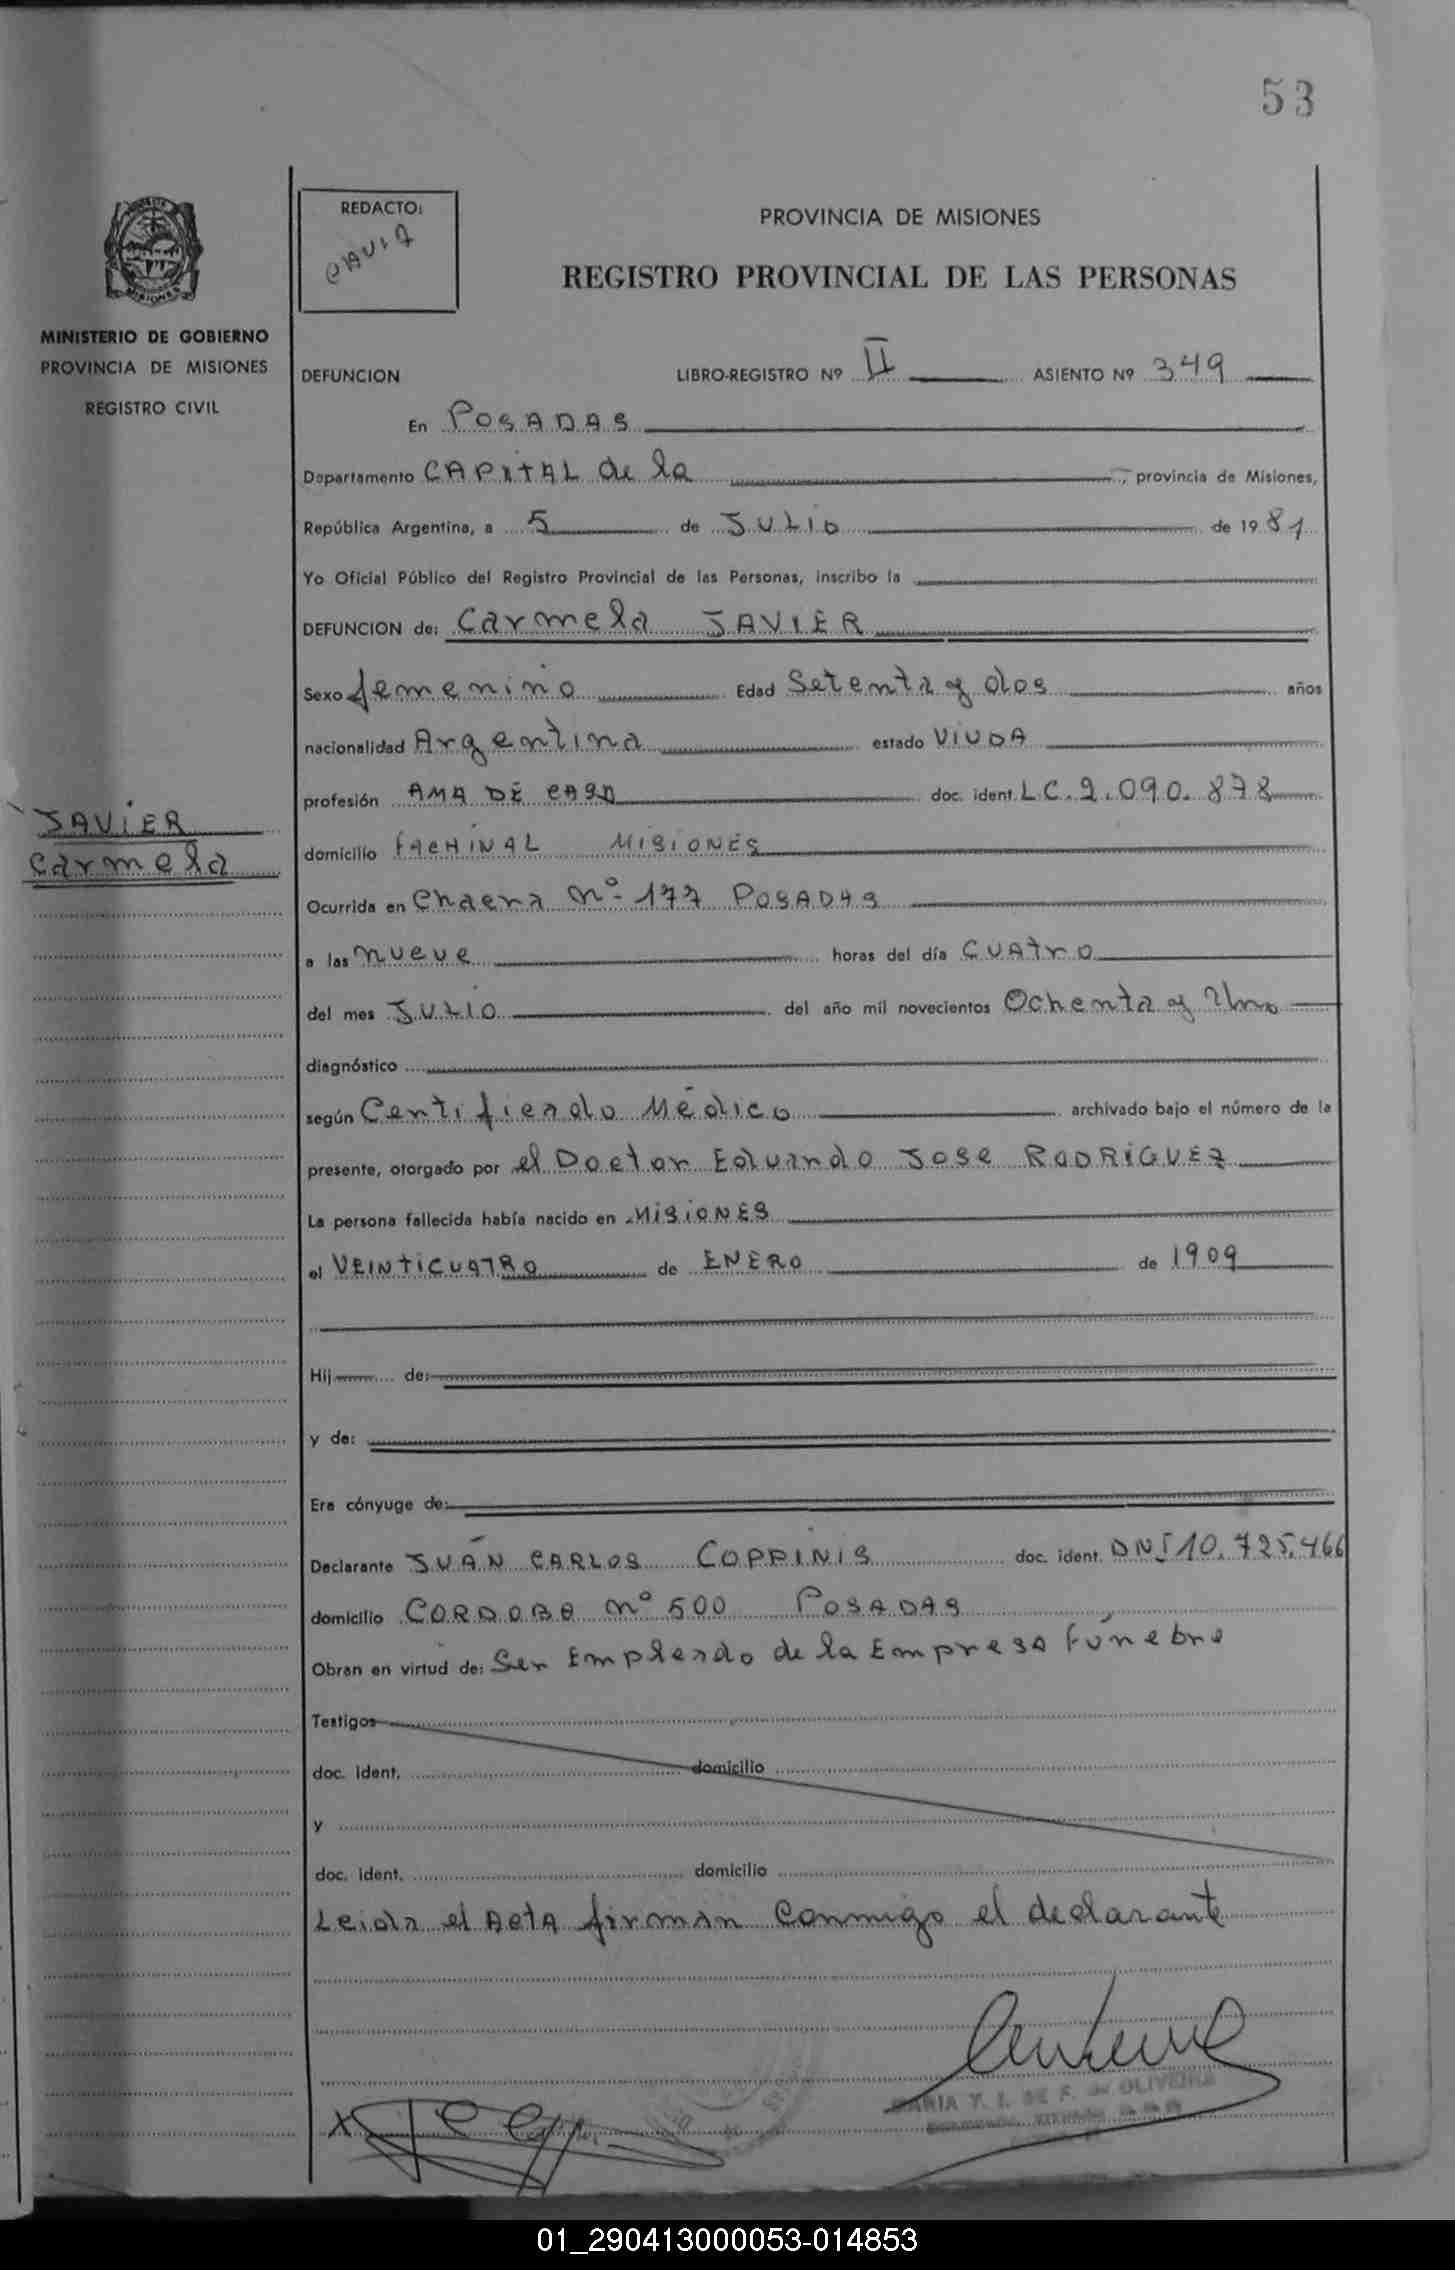 53
REDACTO:
PROVINCIA DE MISIONES
REGISTRO PROVINCIAL DE LAS PERSONAS
MINISTERIO DE GOBIERNO
PROVINCIA DE MISIONES
REGISTRO CIVIL
DEFUNCION LIBRO-REGISTRO Nº II ASIENTO Nº 349
En POSADAS
Departamento CAPITAL de la provincia de Misiones,
República Argentina, a 5 de JULIO de 1981
Yo Oficial Público del Registro Provincial de las Personas, inscribo la
DEFUNCION de: Carmela JAVIER
Sexo femenino Edad Setenta y dos años
nacionalidad Argentina estado VIUDA
profesión AMA DE CASA doc. ident. LC. 2.090.878
JAVIER
Carmela
domicilio FACHINAL MISIONES
Ocurrida en Chacra nº 177 POSADAS
a las nueve horas del día CUATRO
del mes JULIO del año mil novecientos Ochenta y Uno
diagnóstico
según Certificado Médico archivado bajo el número de la
presente, otorgado por el Doctor Eduardo JOSE RODRIGUEZ
La persona fallecida había nacido en MISIONES
el VEINTICUATRO de ENERO de 1909
Hij de:
y de:
Era cónyuge de:
Declarante JUAN CARLOS COPPINIS doc. ident. DNI 10.725.466
domicilio CORDOBA nº 500 POSADAS
Obran en virtud de: Ser Empleado de la Empresa Fúnebre
Testigos
doc. ident. domicilio
y
doc. ident. domicilio
Leida el ActA firman conmigo el declarante
MARIA Y. I. DE F. de OLIVEIRA
01_290413000053-014853